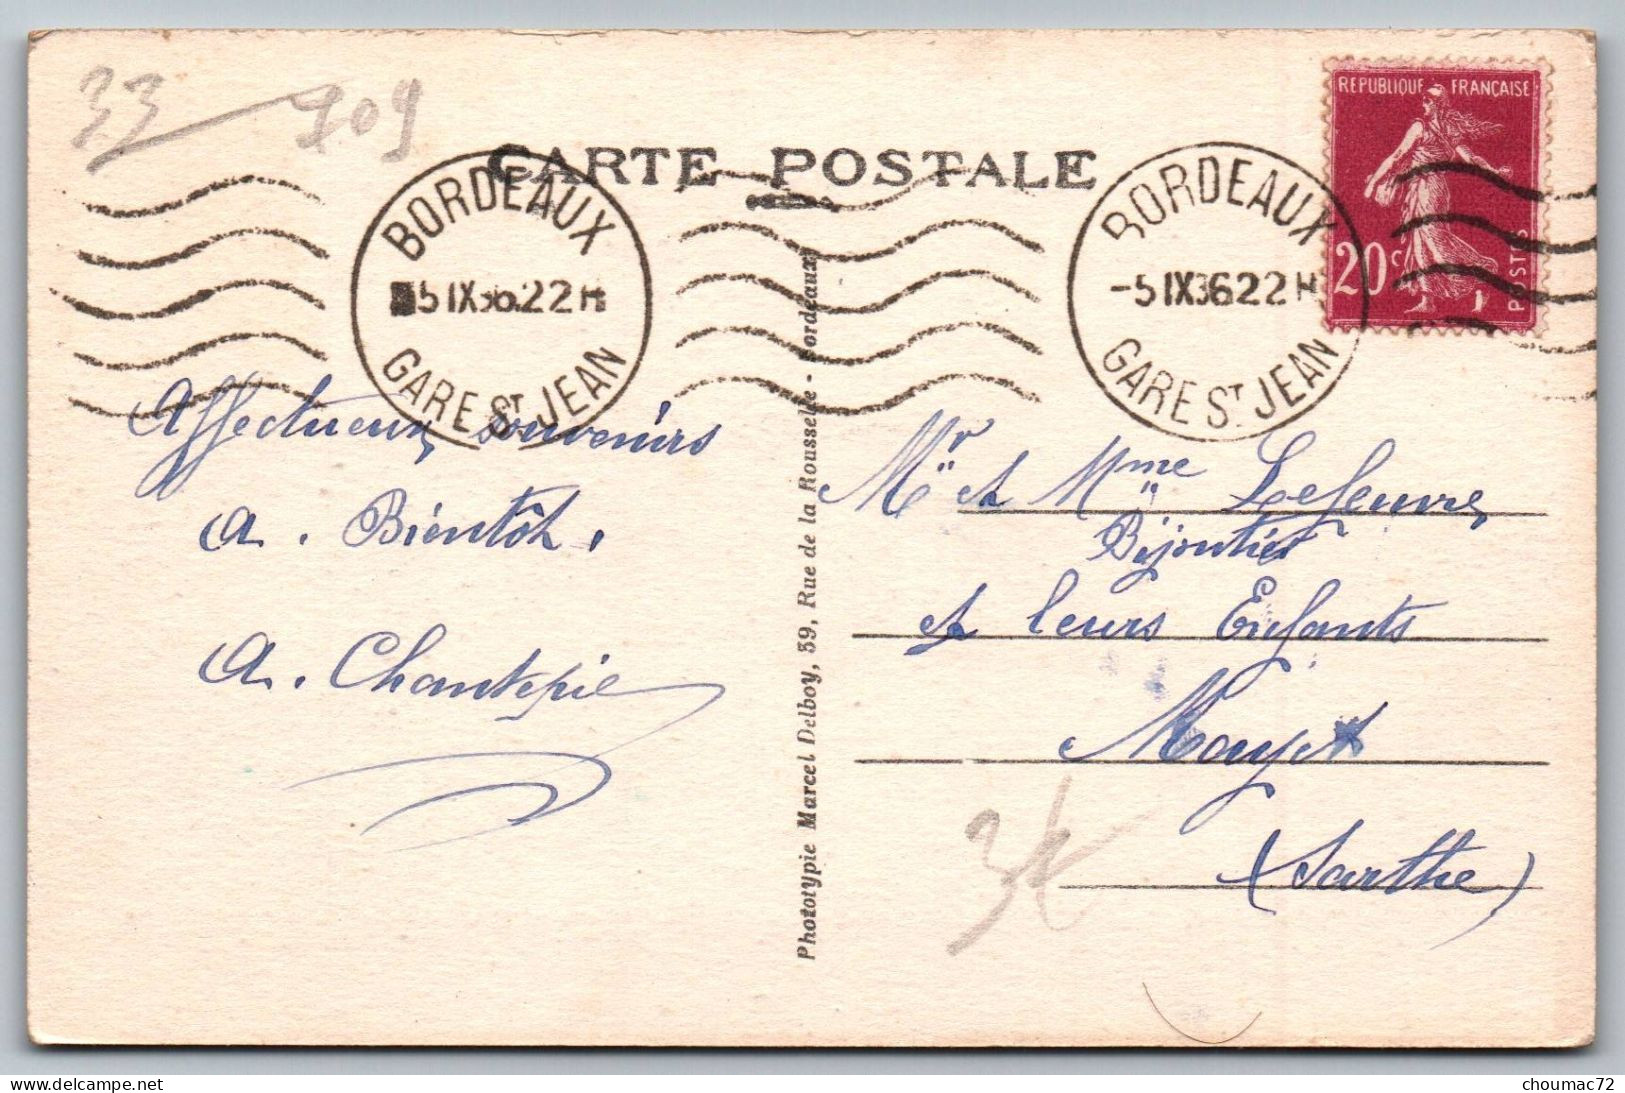 33 909
CARTE POSTALE
REPUBLIQUE FRANÇAISE
20c
POSTES
BORDEAUX
5 IX36.22 H
GARE ST JEAN
BORDEAUX
-5 IX3622 H
GARE ST JEAN
Affectueux souvenirs
A. Bientôt.
A. Chantepie
Phototypie Marcel Delboy, 39, Rue de la Rousselle - Bordeaux
Mr et Mme Lefeuvre
Bijoutier
et leurs Enfants
Mayet
(Sarthe)
3t
delcampe.net
choumac72